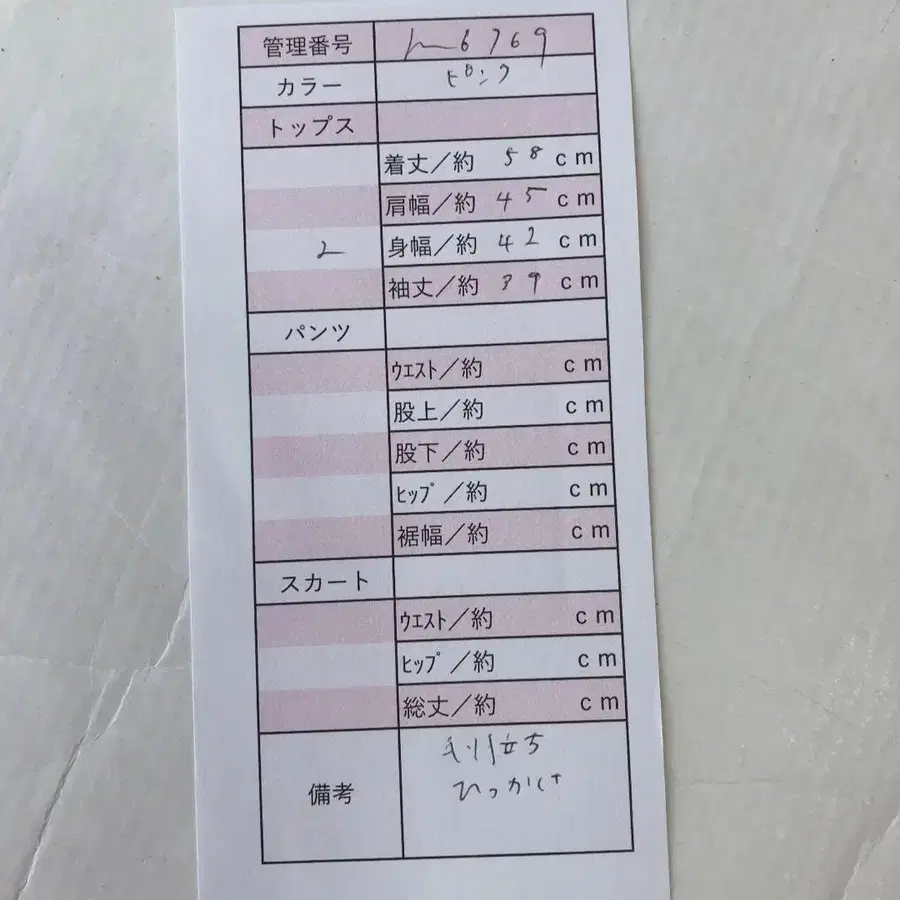 管理番号 m6769
カラー ピンク
トップス
着丈／約 58 cm
肩幅／約 45 cm
2 身幅／約 42 cm
袖丈／約 39 cm
パンツ
ｳｴｽﾄ／約 cm
股上／約 cm
股下／約 cm
ﾋｯﾌﾟ／約 cm
裾幅／約 cm
スカート
ｳｴｽﾄ／約 cm
ﾋｯﾌﾟ／約 cm
総丈／約 cm
備考
毛羽立ち
ひっかけ